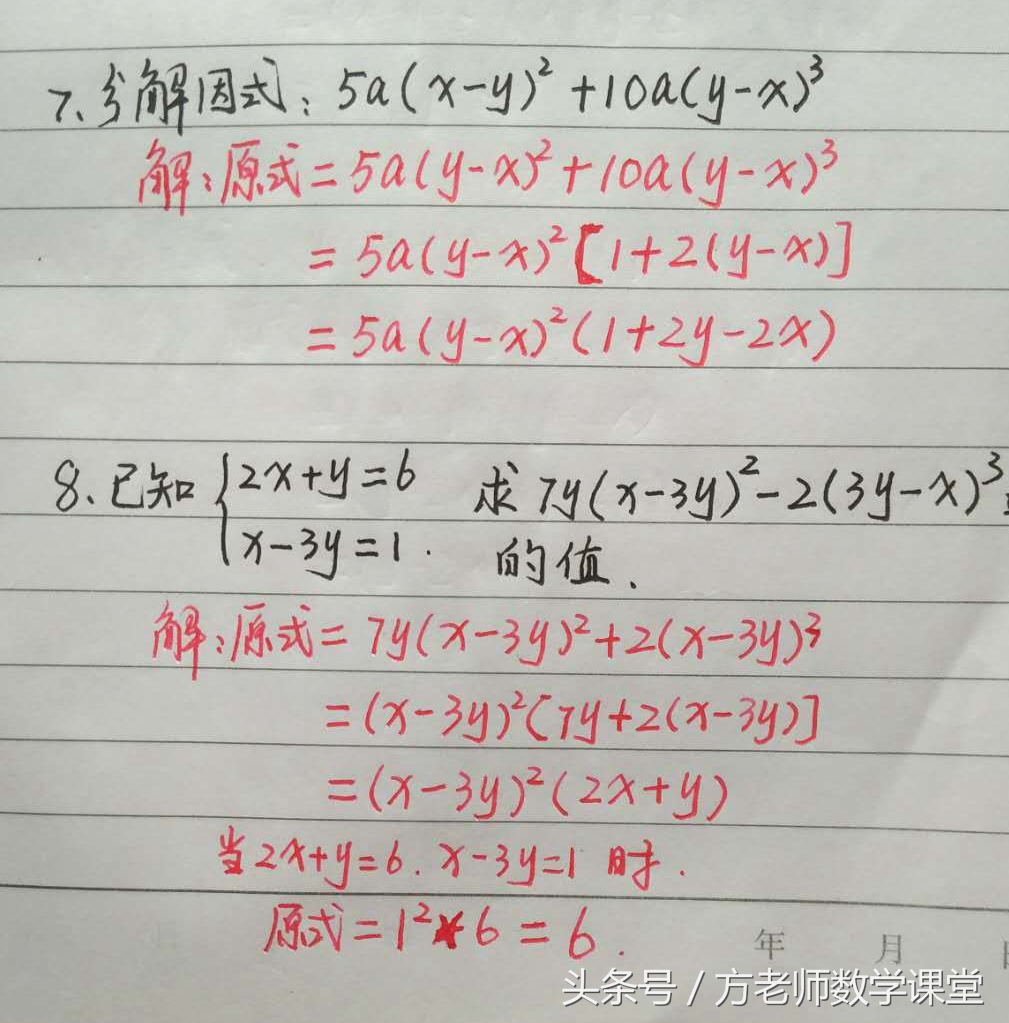 7、分解因式：5a(x-y)²+10a(y-x)³
解：原式=5a(y-x)²+10a(y-x)³
=5a(y-x)²[1+2(y-x)]
=5a(y-x)²(1+2y-2x)
8、已知{2x+y=6 求7y(x-3y)²-2(3y-x)³
x-3y=1. 的值.
解：原式=7y(x-3y)²+2(x-3y)³
=(x-3y)²[7y+2(x-3y)]
=(x-3y)²(2x+y)
当2x+y=6.x-3y=1时.
原式=1²×6=6.
年 月
头条号/方老师数学课堂